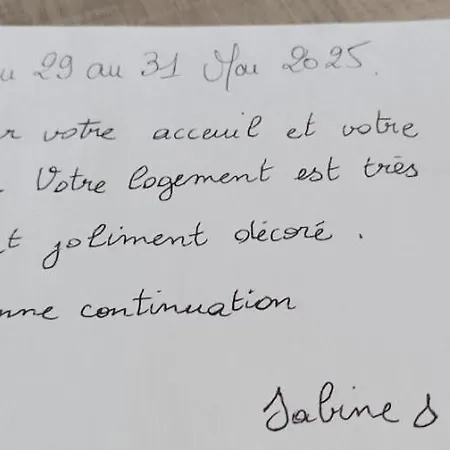 u 29 au 31 Mai 2025.
r votre acceuil et votre
. Votre logement est très
t joliment décoré .
nne continuation
Sabine S